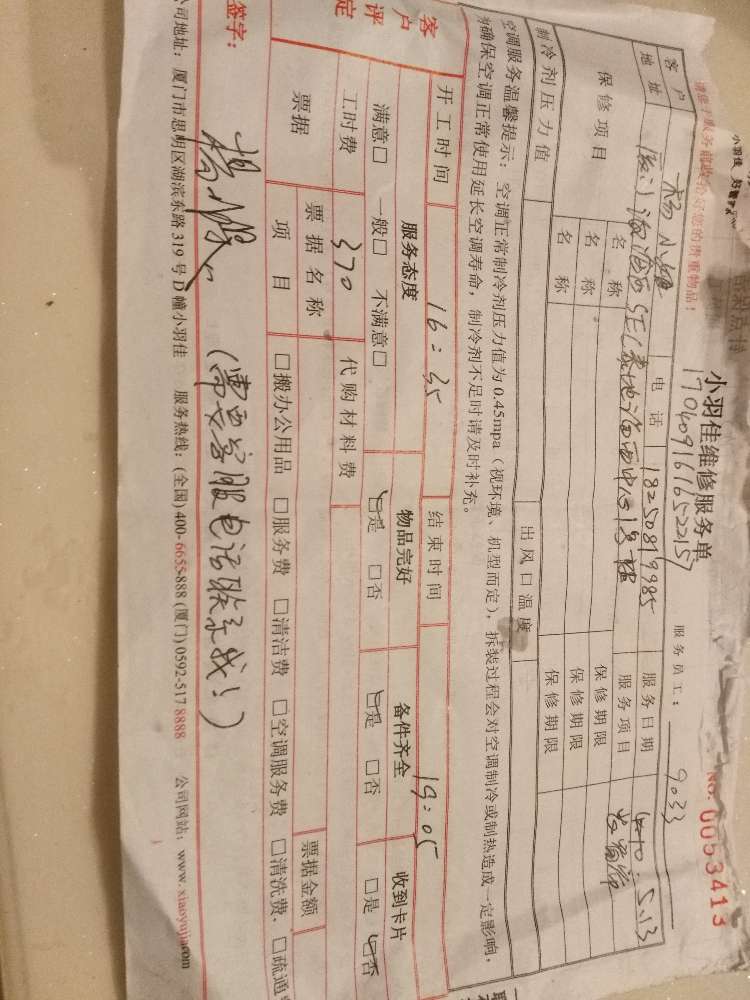 请您于服务前收拾好您的贵重物品！
小羽佳维修服务单
1704091616522157
服务员工： 9033
No. 0053413
客户 杨小姐 电话 18250819985 服务日期
地址 服务项目
保修项目 名称 保修期限
名称 保修期限
名称 保修期限
制冷剂压力值 出风口温度
空调服务温馨提示：空调正常制冷剂压力值为0.45mpa（视环境、机型而定），拆装过程会对空调制冷或制热造成一定影响，
为确保空调正常使用延长空调寿命，制冷剂不足时请及时补充。
开工时间 16：35 结束时间 19：05
客户评定 服务态度 物品完好 备件齐全 收到卡片
满意□ 一般□ 不满意□ □是 □否 □是 □否 □是 □否
工时费 370 代购材料费
票据 票据名称 票据金额
项目 □搬办公用品 □服务费 □清洁费 □空调服务费 □清洗费、□疏通
签字：
电话联系我！）
公司地址：厦门市思明区湖滨东路319号D幢小羽佳 服务热线：(全国)400-6655-888 (厦门)0592-517 8888 公司网站：www.xiaoyujia.com